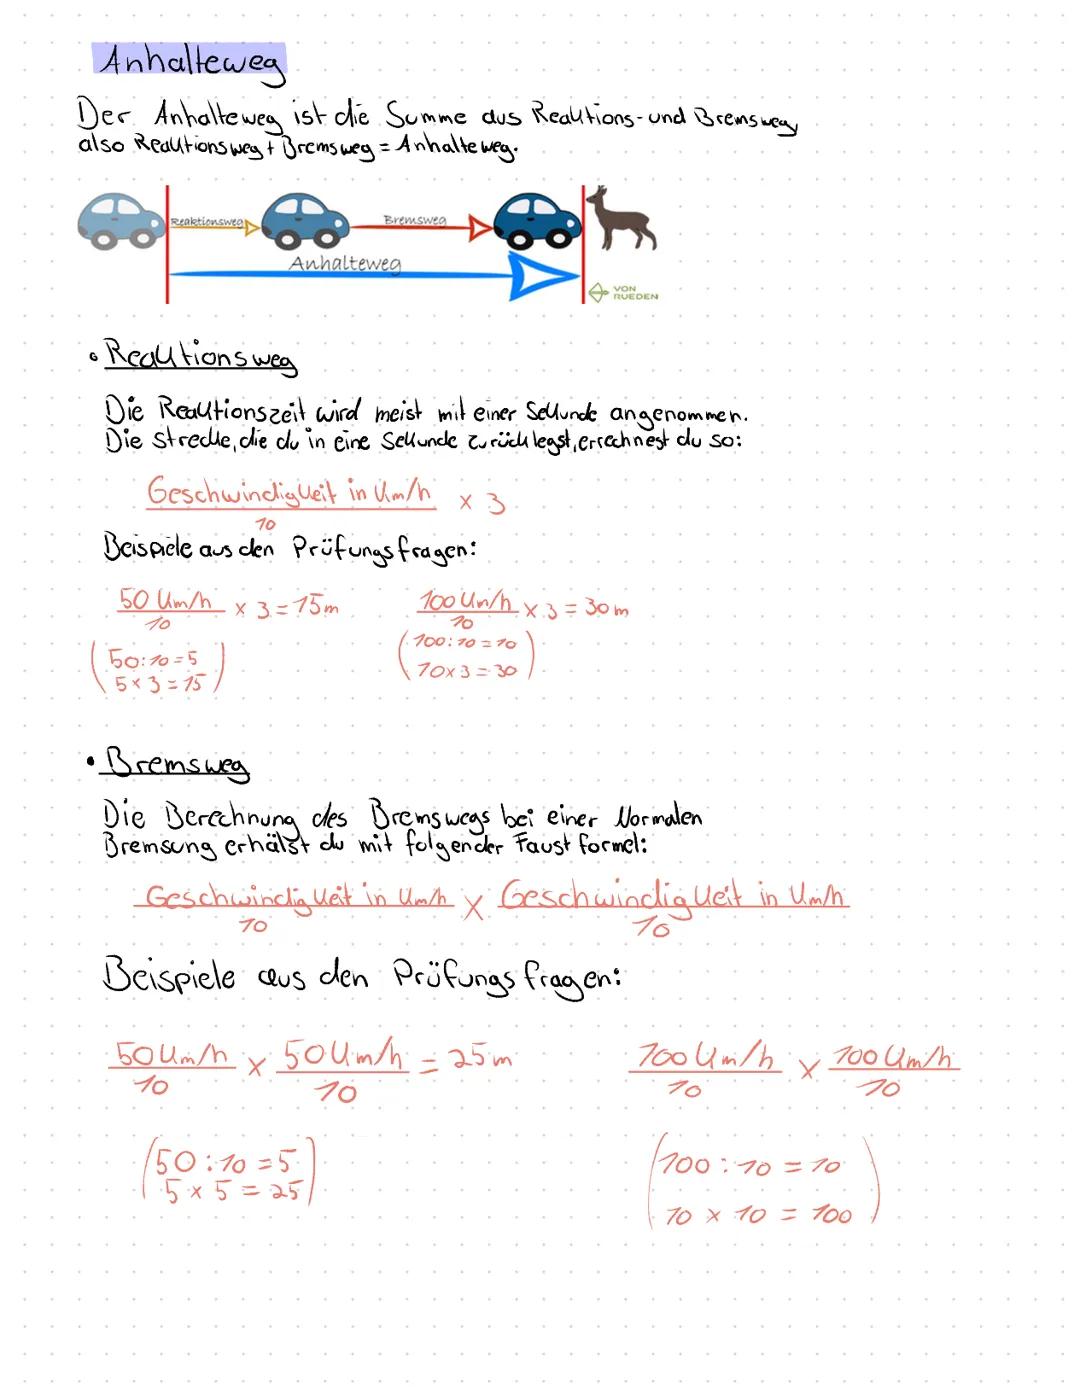 Anhalteweg
Der Anhalteweg ist die Summe aus Reaktions- und Bremsweg
also Reaktionsweg + Bremsweg = Anhalteweg.
Reaktionsweg
Bremsweg
Anhalteweg
VON
RUEDEN
• Reaktionsweg
Die Reaktionszeit wird meist mit einer Sekunde angenommen.
Die strecke, die du in eine Sekunde zurücklegst, errechnest du so:
Geschwindigkeit in km/h × 3
10
Beispiele aus den Prüfungsfragen:
50 km/h × 3 = 15m 100 km/h × 3 = 30m
10 10
(50:10=5 (100:10=10
5×3=15) 10×3=30)
• Bremsweg
Die Berechnung des Bremswegs bei einer Normalen
Bremsung erhälst du mit folgender Faustformel:
Geschwindigkeit in km/h × Geschwindigkeit in km/h
10 10
Beispiele aus den Prüfungsfragen:
50 km/h × 50 km/h = 25m 100 km/h × 100 km/h
10 10 10 10
(50:10=5 (100:10=10
5×5=25) 10×10=100)